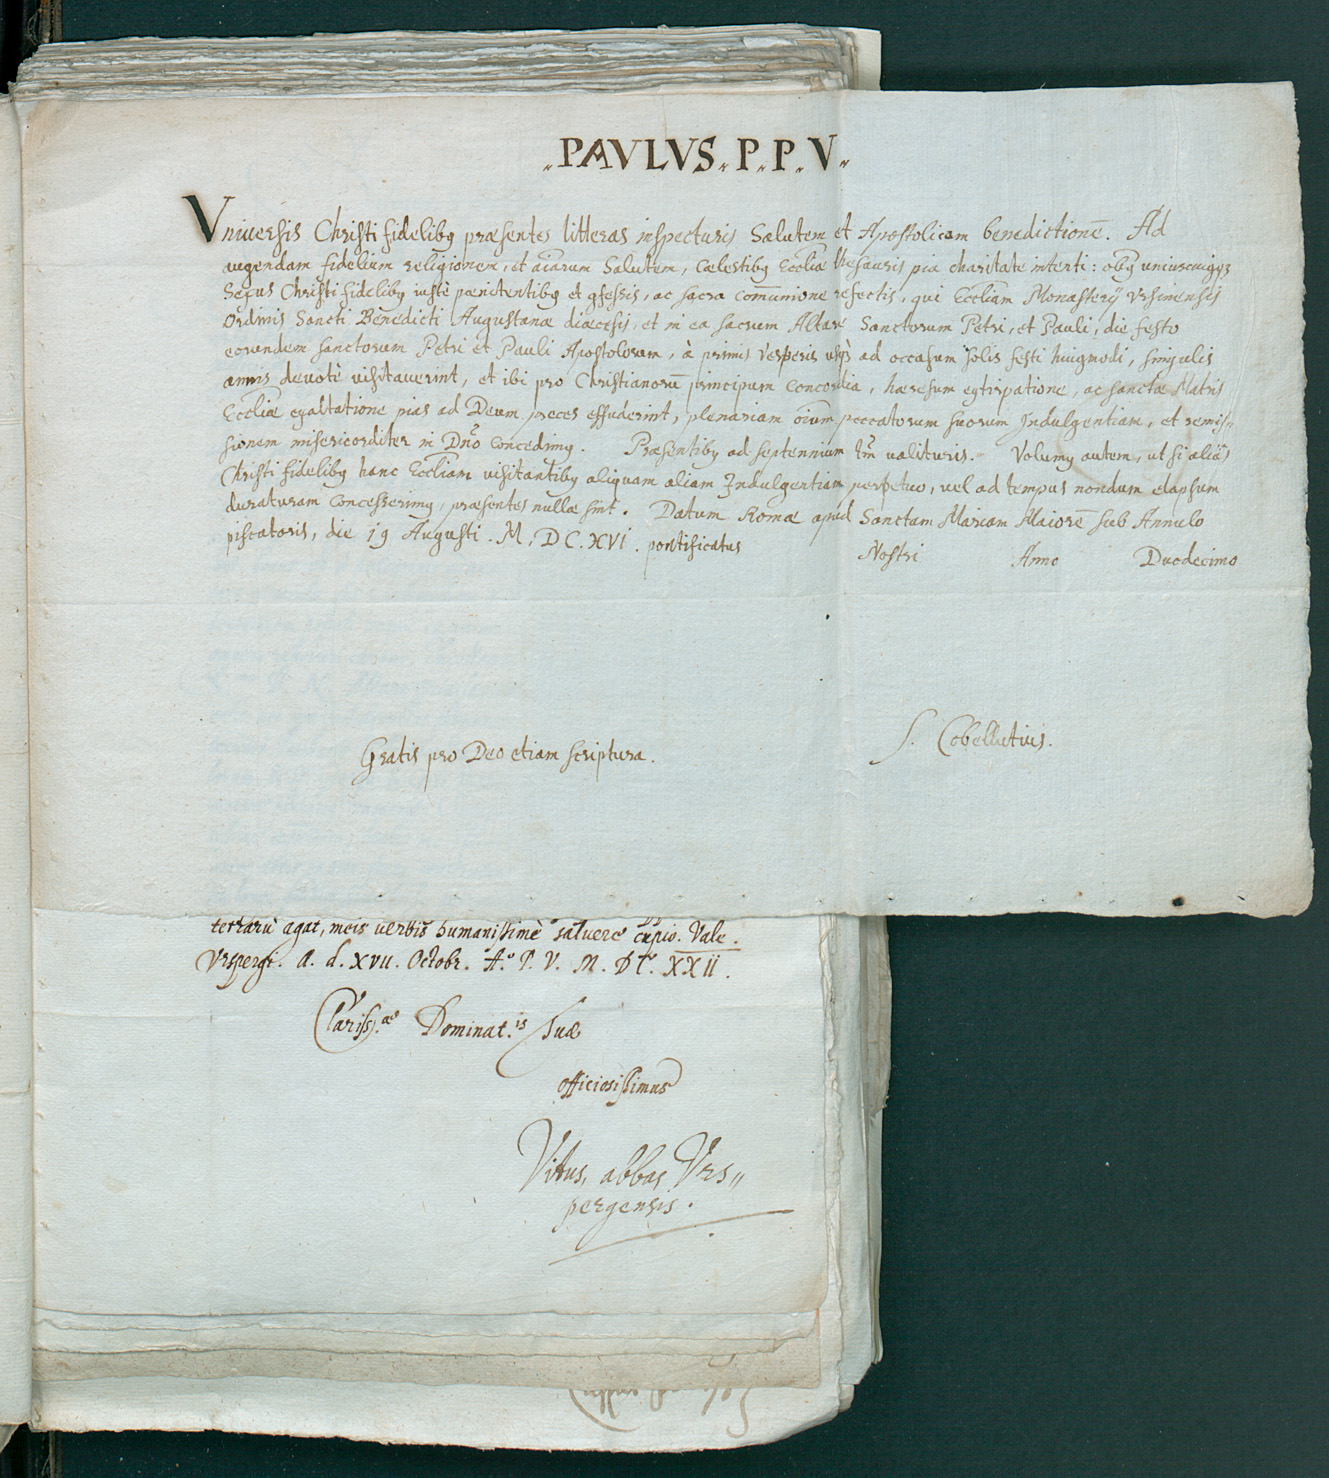 „PAVLVS„P„P„V„
Vniuersis Christi fidelibꝯ præsentes litteras inspecturis Salutem et Apostolicam benedictionē. Ad
augendam fidelium religionem, et aīarum Salutem, Cælestibꝯ Eccliæ thesauris pia charitate intenti: oībꝯ utriusq̨
Sexus Christi fidelibꝯ iustè pænitentibꝯ et ꝯfessis, ac sacra Com̄unione refectis, qui Eccliam Monasterÿ Vrsinensis
Ordinis Sancti Benedicti Augustanæ diæcesis, et in ea sacrum Altare Sanctorum Petri, et Pauli, die festo
eorundem sanctorum Petri et Pauli Apostolorum, à primis Vesperis usq̨ ad occasum solis festi huiꝯmodi, singulis
annis deuotè uisitauerint, et ibi pro Christianorū principum Concordia, hæresum extirpatione, ac sanctæ Matris
Eccliæ exaltatione pias ad Deum preces effuderint, plenariam oīum peccatorum suorum Indulgentiam, et remis„
sionem misericorditer in Dn̄o Concedimꝯ. Præsentibꝯ ad septennium tm̄ ualituris. Volumꝯ autem, ut si aliàs
Christi fidelibꝯ hanc Eccliam uisitantibꝯ aliquam aliam Indulgentiam perpetuo, uel ad tempus nondum elapsum
duraturam Concesserimꝯ, præsentes nullæ sint. Datum Romæ apud Sanctam Mariam Maiorē sub Annulo
piscatoris, die 19 Augusti. M. DC. XVI. pontificatus Nostri Anno Duodecimo
Gratis pro Deo etiam scriptura.
S. Cobellutius.
terrarū agat, meis uerbis humanissimè saluere cupio. Vale.
Vrspergi. a. d. XVII. Octobr. A.º P. V. M. DC. XXII.
Clariss.ae Dominat.is Suæ
officiosissimus
Vitus, abbas Vrs„
pergensis.